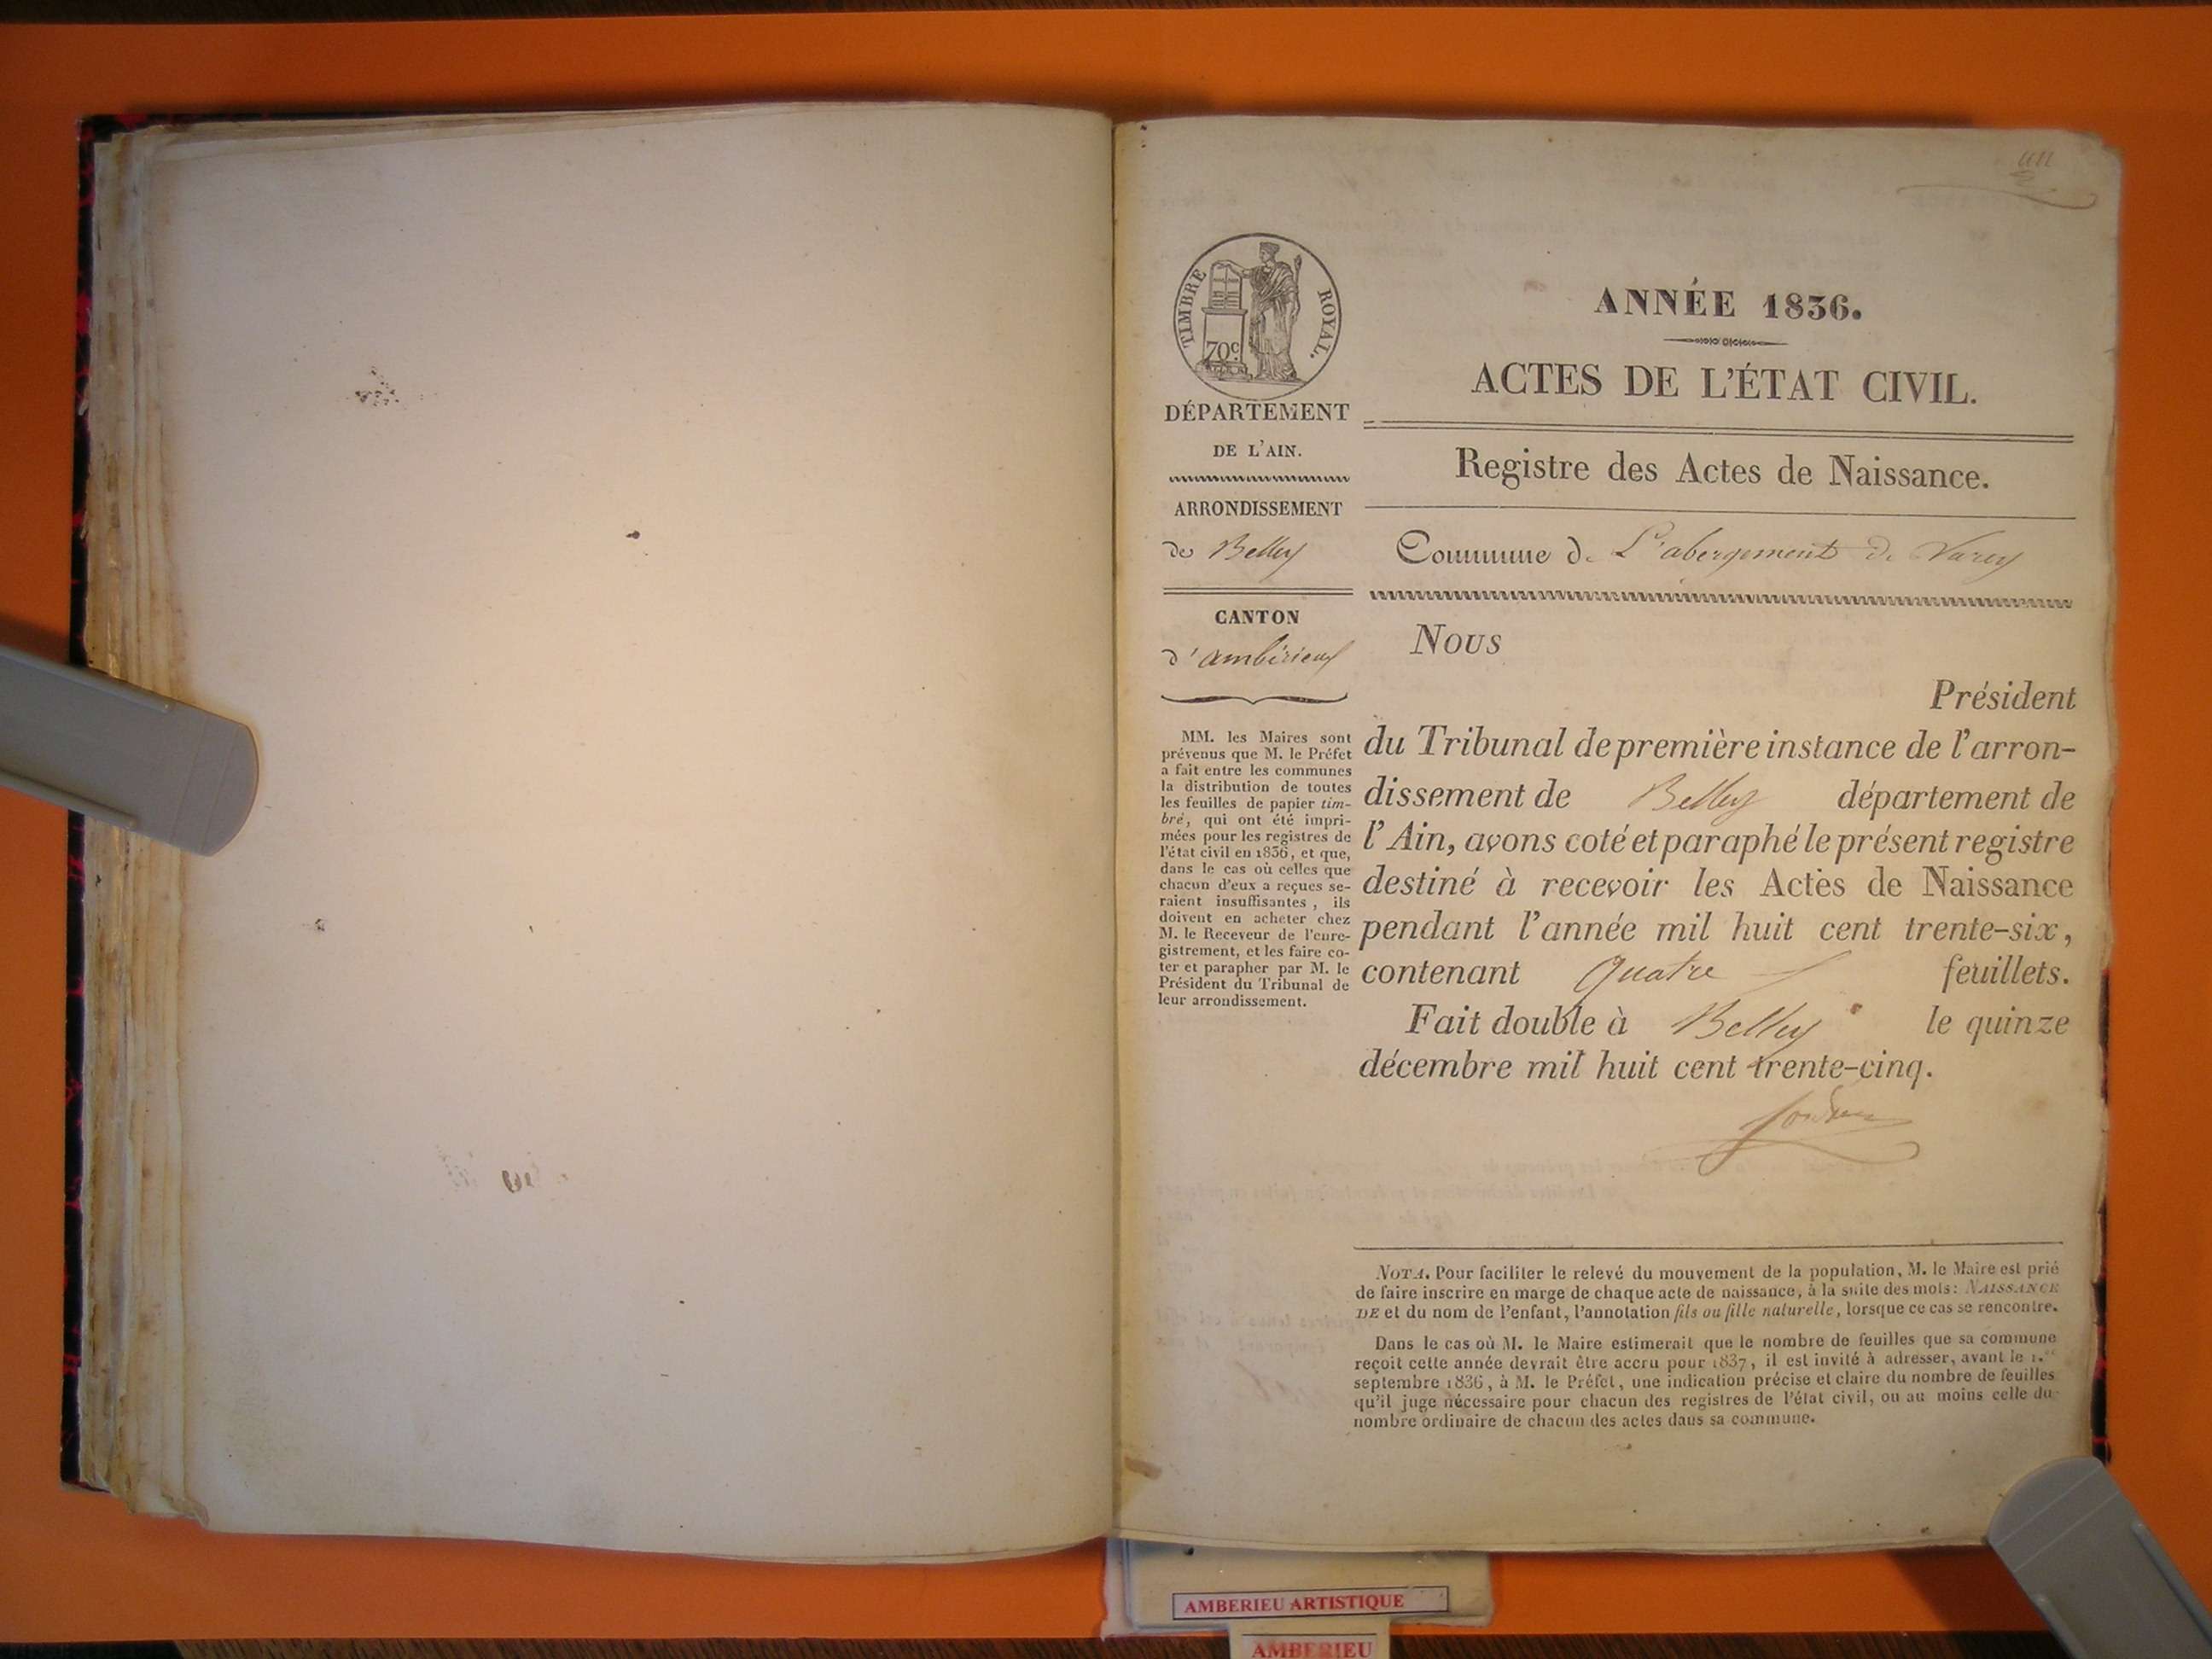 un
TIMBRE ROYAL.
70c.
DÉPARTEMENT
DE L'AIN.
ARRONDISSEMENT
de Belley
CANTON
d'ambérieux
MM. les Maires sont
prévenus que M. le Préfet
a fait entre les communes
la distribution de toutes
les feuilles de papier tim-
bré, qui ont été impri-
mées pour les registres de
l'état civil en 1836, et que,
dans le cas où celles que
chacun d'eux a reçues se-
raient insuffisantes, ils
doivent en acheter chez
M. le Receveur de l'enre-
gistrement, et les faire co-
ter et parapher par M. le
Président du Tribunal de
leur arrondissement.
ANNÉE 1836.
ACTES DE L'ÉTAT CIVIL.
Registre des Actes de Naissance.
Commune de L'abergement de Varey
Nous
Président
du Tribunal de première instance de l'arron-
dissement de Belley département de
l'Ain, avons coté et paraphé le présent registre
destiné à recevoir les Actes de Naissance
pendant l'année mil huit cent trente-six,
contenant quatre feuillets.
Fait double à Belley le quinze
décembre mil huit cent trente-cinq.
NOTA. Pour faciliter le relevé du mouvement de la population, M. le Maire est prié
de faire inscrire en marge de chaque acte de naissance, à la suite des mots: NAISSANCE
DE et du nom de l'enfant, l'annotation fils ou fille naturelle, lorsque ce cas se rencontre.
Dans le cas où M. le Maire estimerait que le nombre de feuilles que sa commune
reçoit cette année devrait être accru pour 1837, il est invité à adresser, avant le 1.er
septembre 1836, à M. le Préfet, une indication précise et claire du nombre de feuilles
qu'il juge nécessaire pour chacun des registres de l'état civil, ou au moins celle du
nombre ordinaire de chacun des actes dans sa commune.
AMBERIEU ARTISTIQUE
AMBERIEU